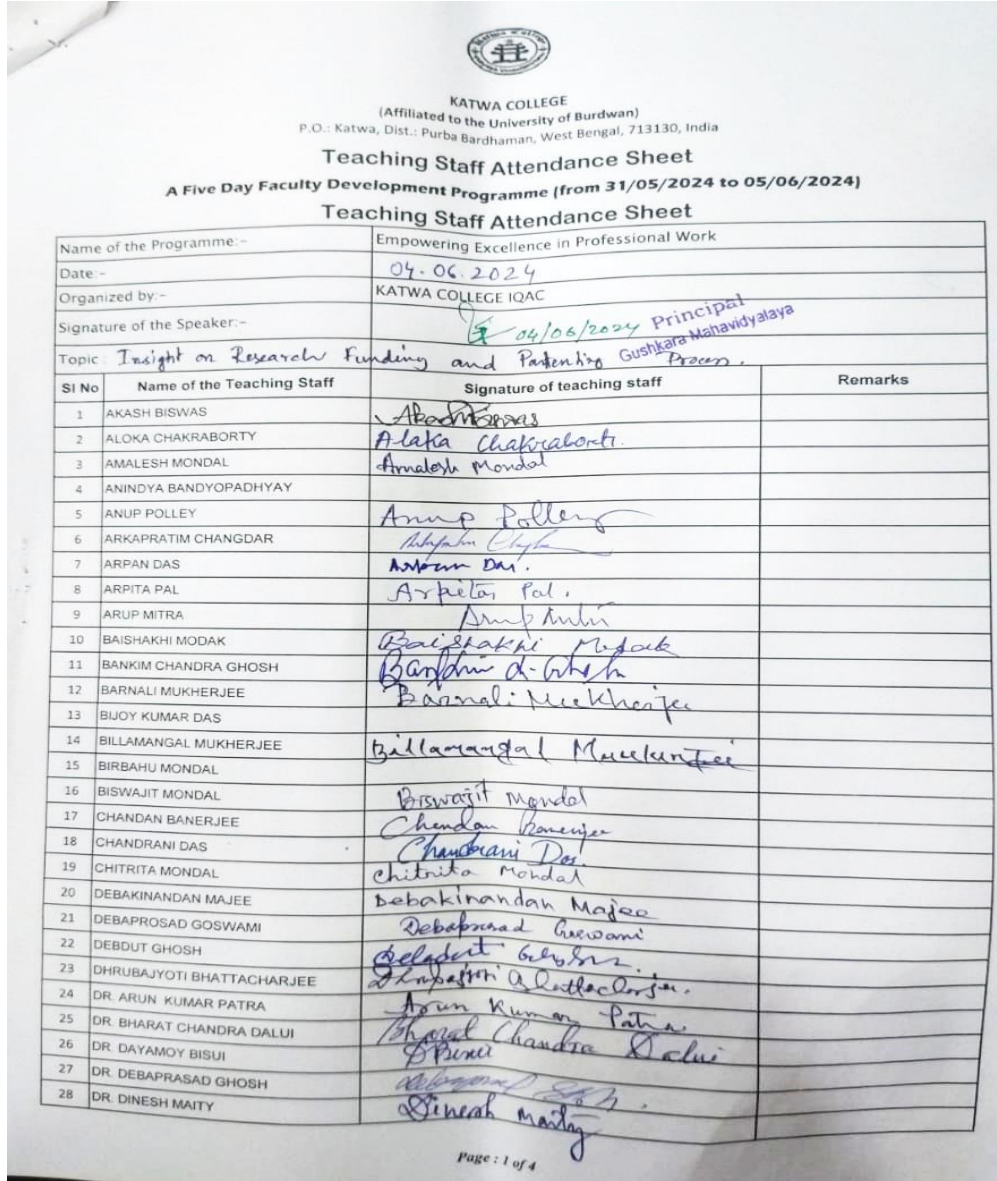 KATWA COLLEGE
(Affiliated to the University of Burdwan)
P.O.: Katwa, Dist.: Purba Bardhaman, West Bengal, 713130, India
Teaching Staff Attendance Sheet
A Five Day Faculty Development Programme (from 31/05/2024 to 05/06/2024)
Teaching Staff Attendance Sheet
Name of the Programme:- Empowering Excellence in Professional Work
Date:- 04.06.2024
Organized by:- KATWA COLLEGE IQAC
Signature of the Speaker:- 04/06/2024 Principal
Gushkara Mahavidyalaya
Topic : Insight on Research Funding and Patenting Process.
Sl No Name of the Teaching Staff Signature of teaching staff Remarks
1 AKASH BISWAS Akash Biswas
2 ALOKA CHAKRABORTY Alaka Chakraborti.
3 AMALESH MONDAL Amalesh Mondal
4 ANINDYA BANDYOPADHYAY
5 ANUP POLLEY Anup Polley
6 ARKAPRATIM CHANGDAR
7 ARPAN DAS Arpan Das.
8 ARPITA PAL Arpita Pal.
9 ARUP MITRA Arup Mitra
10 BAISHAKHI MODAK Baishakhi Modak
11 BANKIM CHANDRA GHOSH
12 BARNALI MUKHERJEE Barnali Mukherjee
13 BIJOY KUMAR DAS
14 BILLAMANGAL MUKHERJEE Billamangal Mukherjee
15 BIRBAHU MONDAL
16 BISWAJIT MONDAL Biswajit Mondal
17 CHANDAN BANERJEE Chandan Banerjee
18 CHANDRANI DAS Chandrani Das.
19 CHITRITA MONDAL Chitrita Mondal
20 DEBAKINANDAN MAJEE Debakinandan Majee
21 DEBAPROSAD GOSWAMI Debaprosad Goswami
22 DEBDUT GHOSH
23 DHRUBAJYOTI BHATTACHARJEE Dhrubajyoti Bhattacharjee.
24 DR. ARUN KUMAR PATRA Arun Kumar Patra
25 DR. BHARAT CHANDRA DALUI Bharat Chandra Dalui
26 DR. DAYAMOY BISUI DBisui
27 DR. DEBAPRASAD GHOSH
28 DR. DINESH MAITY Dinesh Maity
Page : 1 of 4